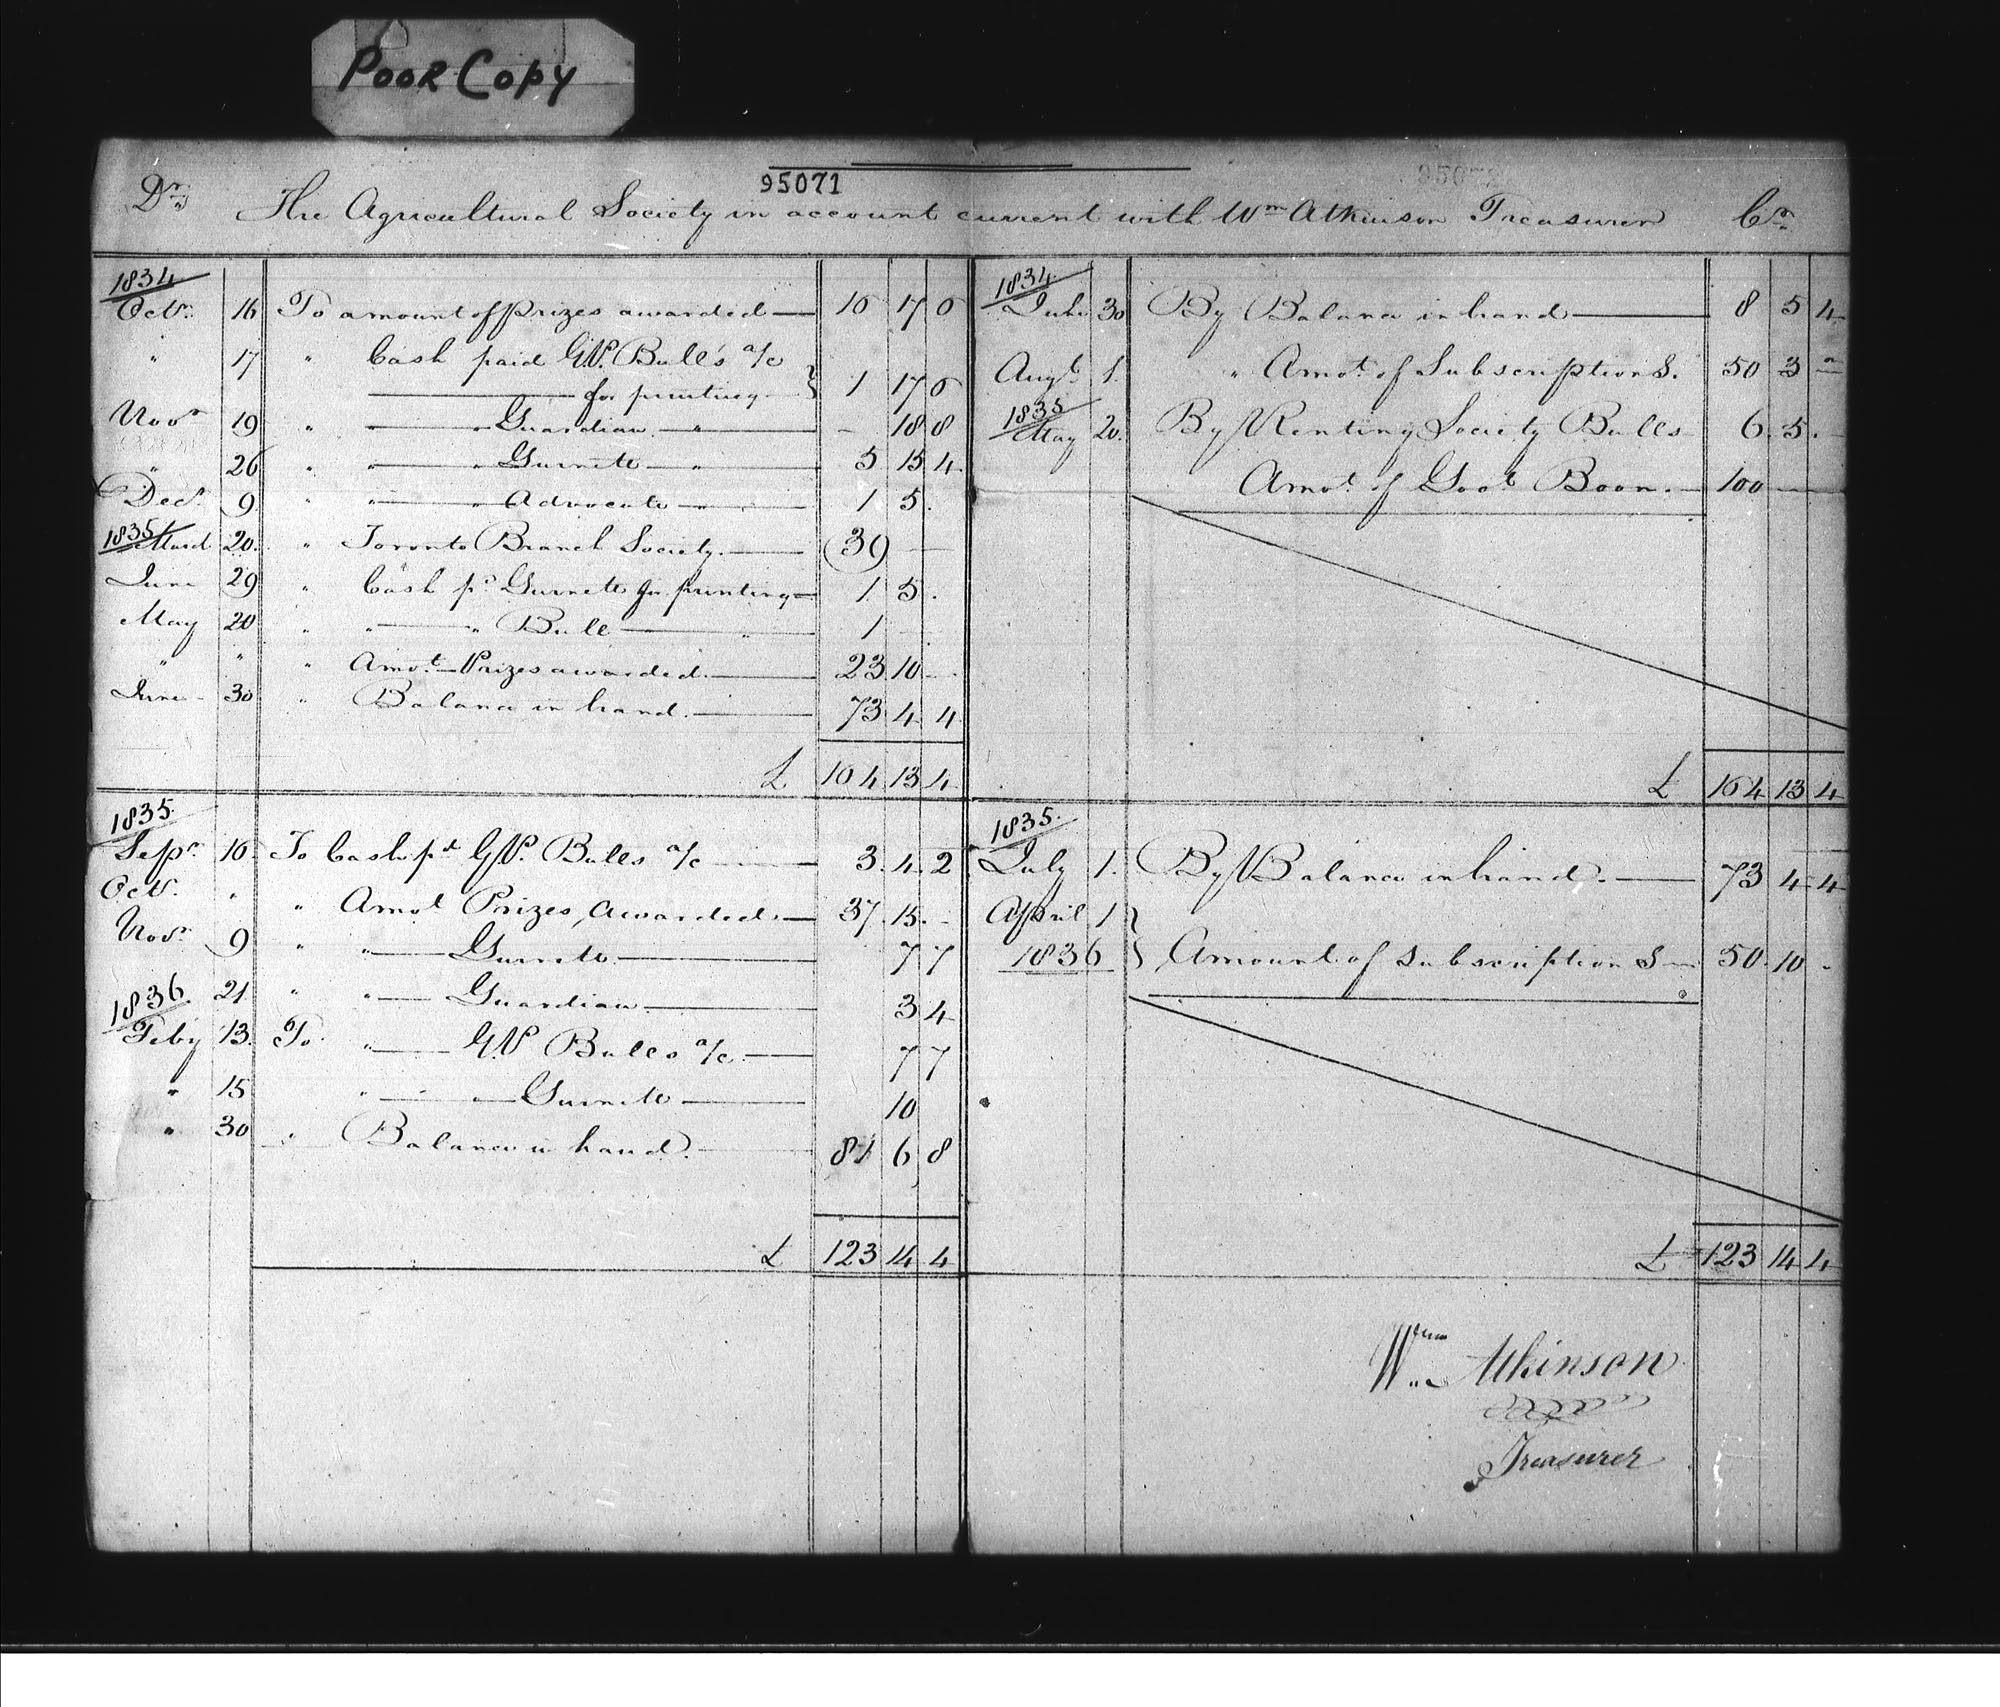 Poor Copy
95071
Dr. The Agricultural Society in account current with Wm Atkinson Treasurer Cr.
1834
Octr. 16 To amount of Prizes awarded 16 17 6
" 17 " Cash paid G.P. Bull's a/c
for printing } 1 17 6
Novr 19 " " Guardian " - 18 8
" 26 " " " Gurnett " 5 15 4
Decr. 9 " " " Advocate " 1 5 .
1835
March 20. " Toronto Branch Society. (39) —
June 29 " Cash pd Gurnett for printing 1 5 .
May 20 " " " Bull " 1 —
" " " Amot. Prizes awarded. 23 10 -
June 30 " Balance in hand. 73 4 4
£ 164 13 4
1835
Sepr. 10 To Cash pd G.P. Bulls a/c 3 4 2
Octr. " " Amot Prizes Awarded. 37 15 -
Novr. 9 " " Gurnett 7 7
21 " " Guardian 3 4
1836
Feby 13. To " G.P. Bulls a/c. 7 7
" 15 " " Gurnett 10
" 30 " Balance in hand. 81 6 8
£ 123 14 4
1834
June 30 By Balance in hand 8 5 4
Augt. 1. " Amot. of Subscriptions. 50 3 "
1835
May 20. By Renting Society Bulls 6 5 -
Amot. of Govt Boon. 100 —
£ 164 13 4
1835.
July 1. By Balance in hand. 73 4 4
April 1 }
1836 } Amount of Subscriptions 50 10 -
£ 123 14 4
Wm Atkinson
Treasurer